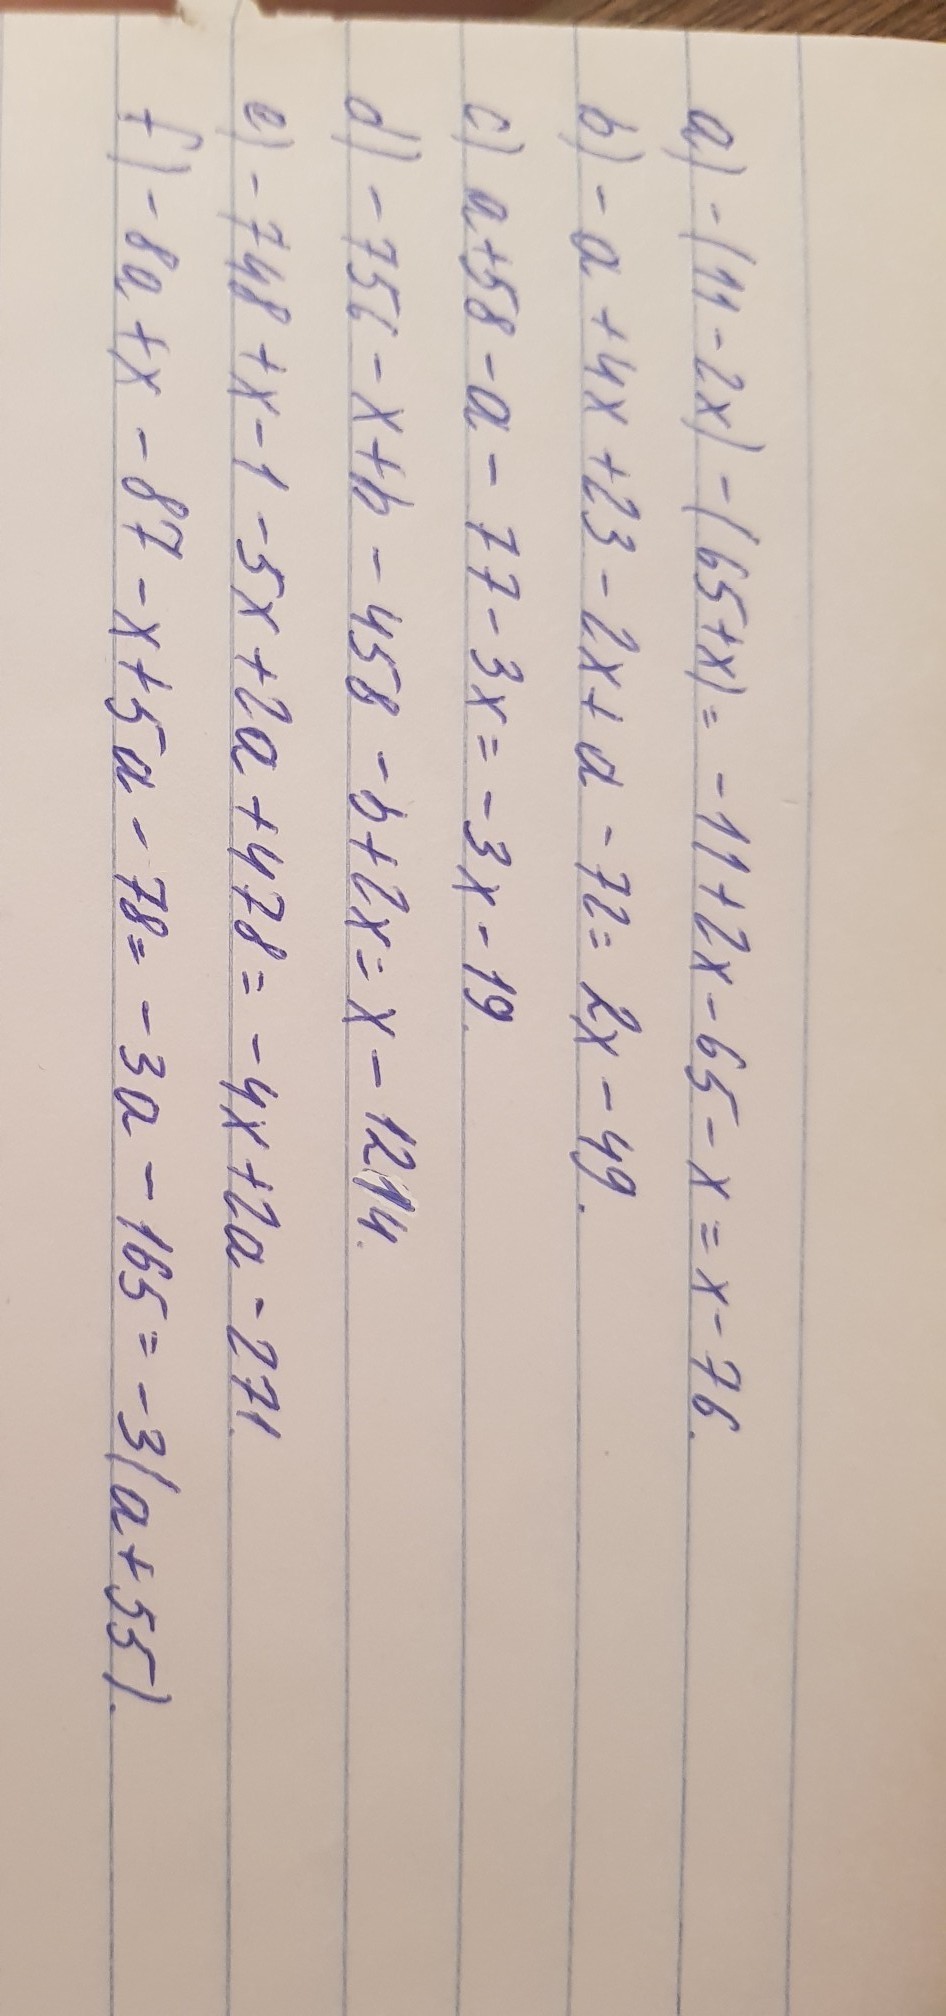 a) -(11-2x)-(65+x)= -11+2x-65-x=x-76.
b) -a+4x+23-2x+a-72=2x-49.
c) a+58-a-77-3x=-3x-19.
d) -756-x+b-458-b+2x=x-1214.
e) -748+x-1-5x+2a+478=-4x+2a-271.
f) -8a+x-87-x+5a-78=-3a-165=-3(a+55).